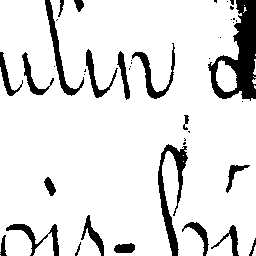 ulin d
ois-bi